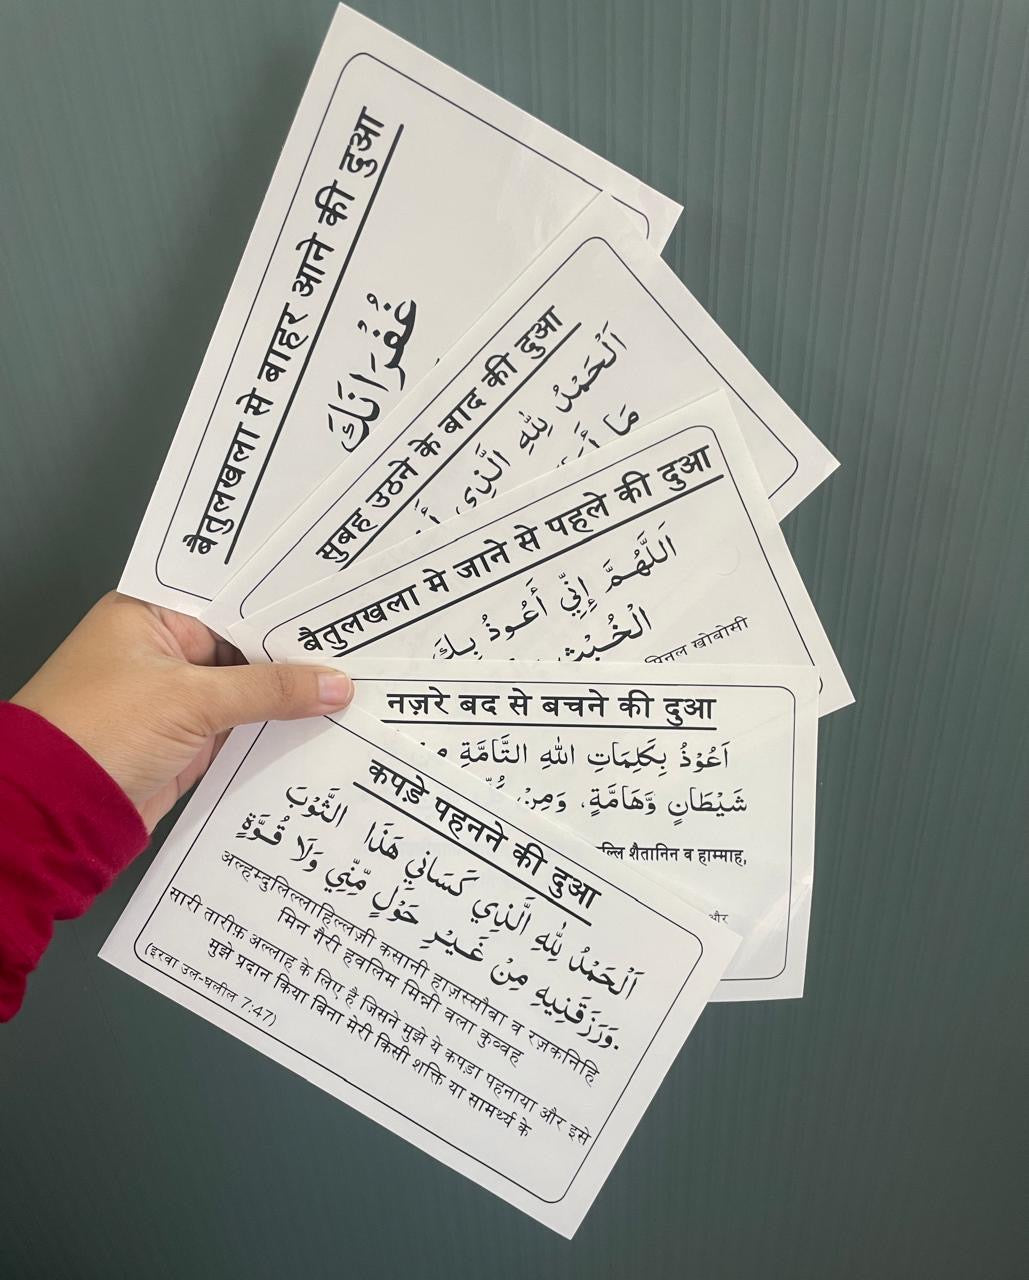 बैतुलखला से बाहर आने की दुआ
غُفْرَانَكَ
सुबह उठने के बाद की दुआ
اَلْحَمْدُ لِلّٰهِ الَّذِى
مَا
बैतुलखला मे जाने से पहले की दुआ
اَللّٰهُمَّ إِنِّي أَعُوذُ بِكَ
खोबोसी
नज़रे बद से बचने की दुआ
اَعُوْذُ بِكَلِمَاتِ اللهِ التَّامَّةِ
شَيْطَانٍ وَّهَامَّةٍ، وَمِنْ
शैतानिन व हाम्माह,
और
कपड़े पहनने की दुआ
اَلْحَمْدُ لِلّٰهِ الَّذِي كَسَانِي هَذَا الثَّوْبَ
وَرَزَقَنِيهِ مِنْ غَيْرِ حَوْلٍ مِّنِّي وَلَا قُوَّةٍ.
अल्हम्दुलिल्लाहिल्लज़ी कसानी हाज़स्सौबा व रज़कनिहि
मिन गैरी हवलिम मिन्नी वला कुव्वह
सारी तारीफ़ अल्लाह के लिए है जिसने मुझे ये कपड़ा पहनाया और इसे
मुझे प्रदान किया बिना मेरी किसी शक्ति या सामर्थ्य के
(इरवा उल-घलील 7:47)